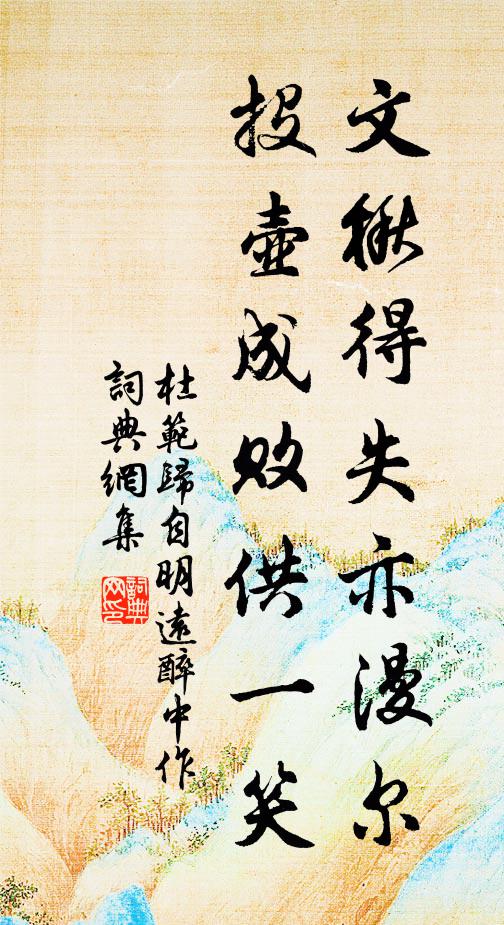 文楸得失亦漫尔
投壷成敗供一笑
杜範歸自明遠醉中作
詞典網集
詞典
网印